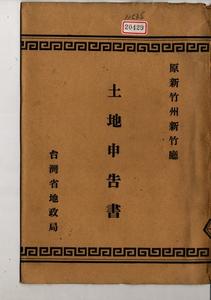 20429
原新竹州新竹廳
土地申告書
台灣省地政局